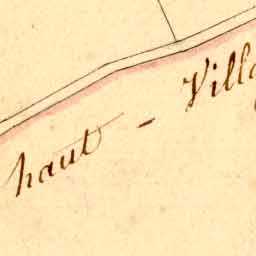 haut - Villa